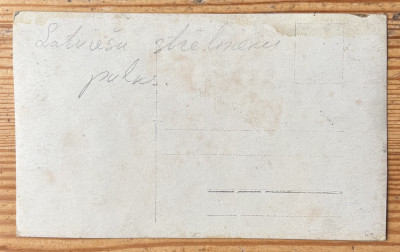 Latviešu strēlnieku
pulks.